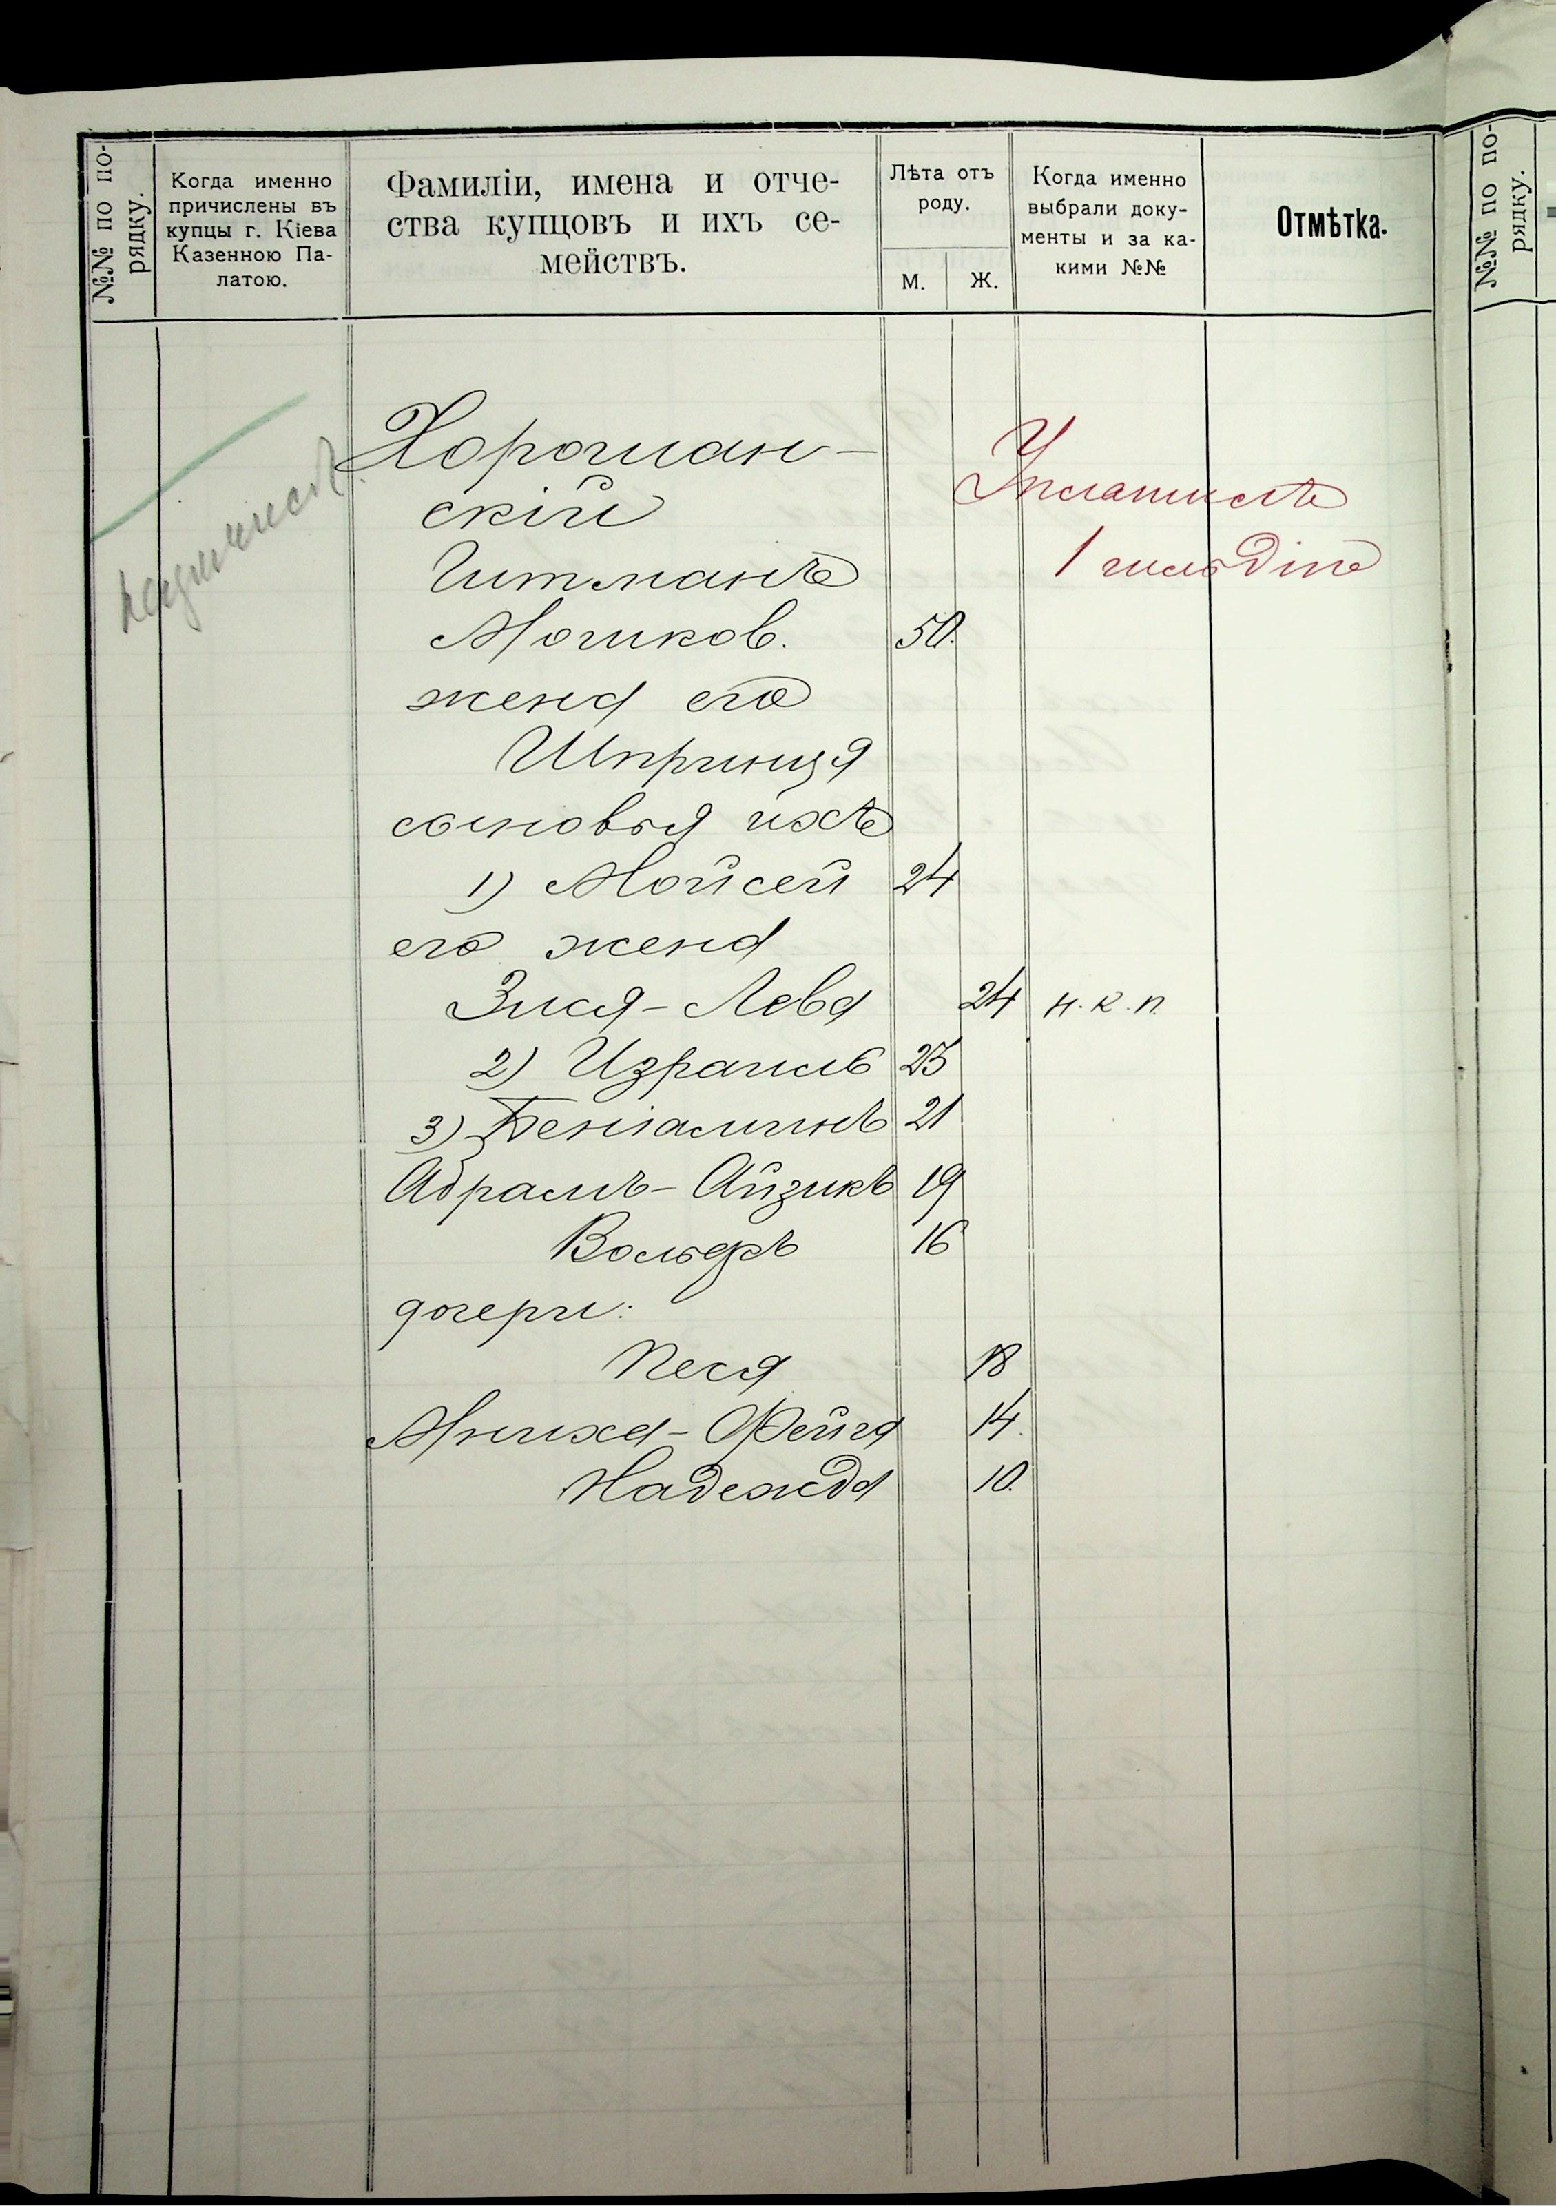 №№ по по-
рядку.
Когда именно
причислены въ
купцы г. Кіева
Казенною Па-
латою.
Фамиліи, имена и отче-
ства купцовъ и ихъ се-
мействъ.
Лѣта отъ
роду.
М.
Ж.
Когда именно
выбрали доку-
менты и за ка-
кими №№
Отмѣтка.
№№ по по-
рядку.
Хорошан-
скій
Гитманъ
Мошков. 50.
жена его
Шпринця
сыновья ихъ
1) Мойсей 24
его жена
Зися-Лева 24 н.к.п.
2) Израиль 23
3) Бенiаминъ 21
Абрамъ-Айзикъ 19
Вольфъ 16
дочери:
Песя 18
Мниха-Фейга 14.
Надежда 10.
Уплатилъ
1 гильдію